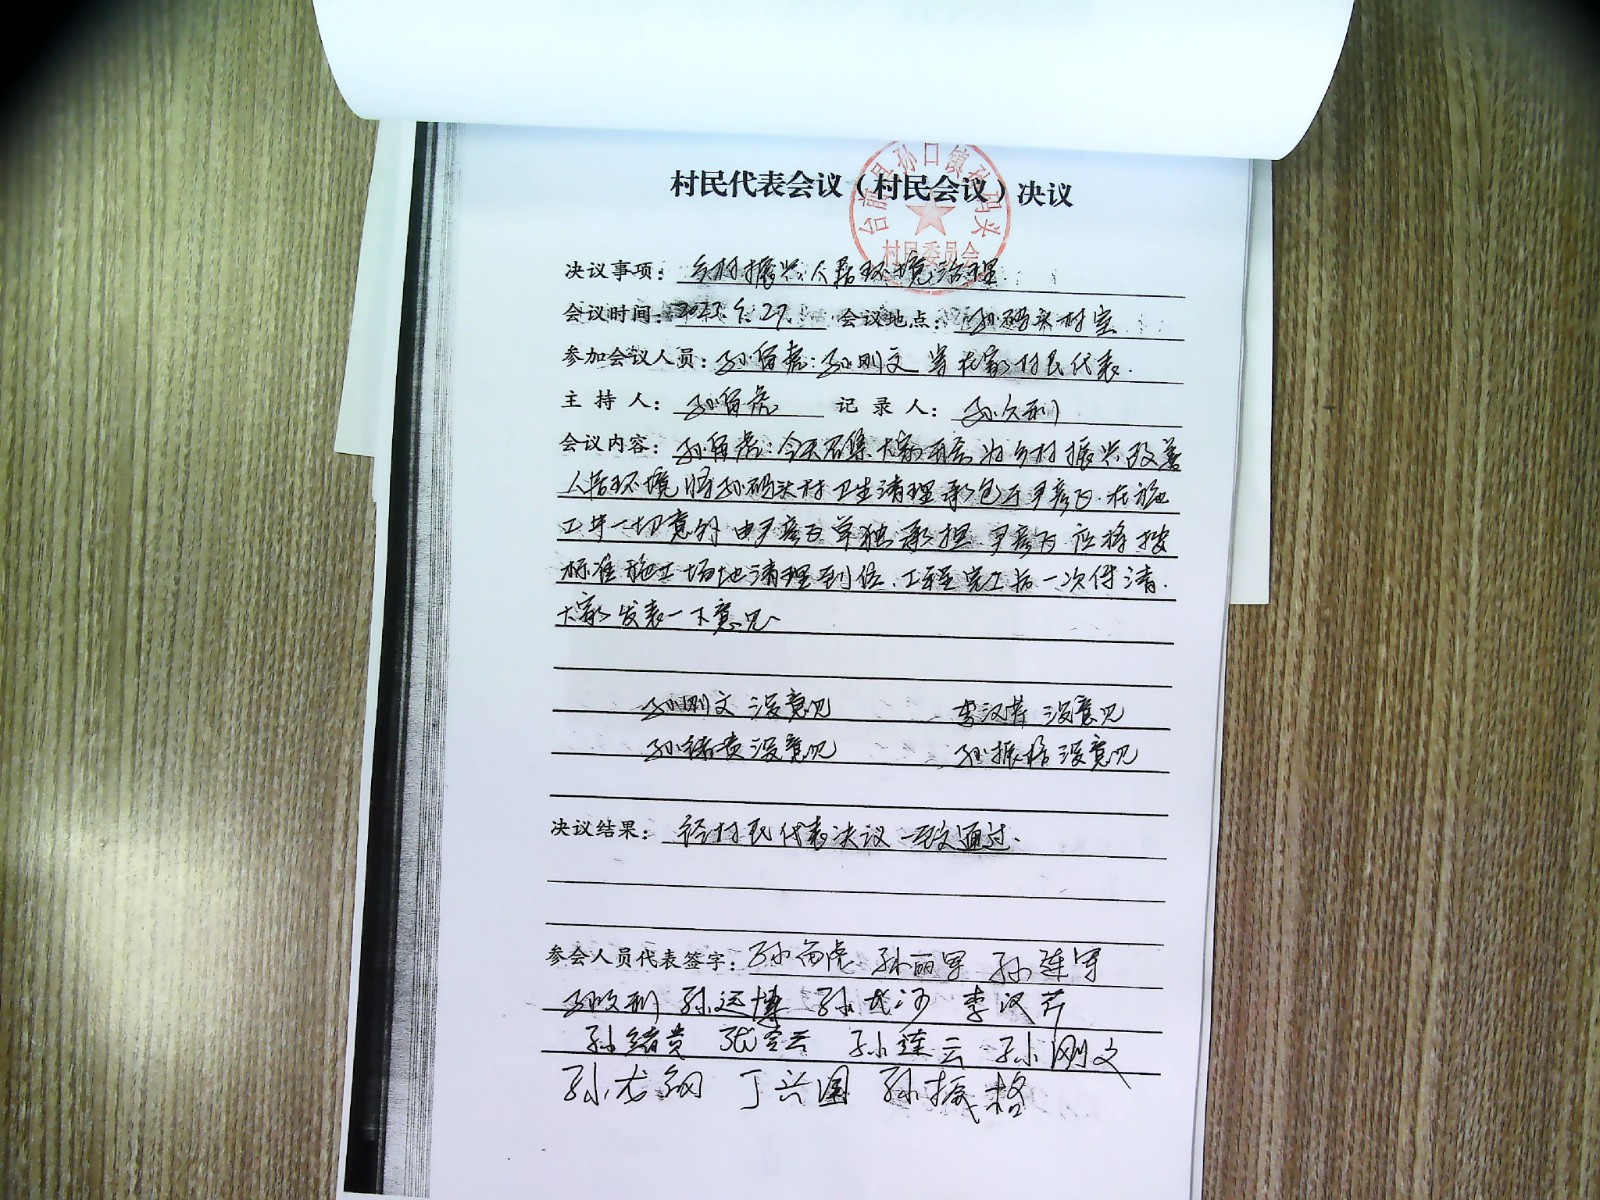 台前县孙口镇孙码头
村民委员会
村民代表会议（村民会议）决议
决议事项：乡村振兴人居环境治理
会议时间：5.27. 会议地点：孙码头村室
参加会议人员：孙留虎：孙刚文 等在家村民代表.
主持人：孙留虎 记录人：孙久利
会议内容：孙留虎：今天召集大家开会为乡村振兴改善
人居环境将孙码头村卫生清理承包于尹彦飞.在施
工中一切意外由尹彦飞单独承担.尹彦飞应将按
标准施工场地清理到位.工程完工后一次付清.
大家发表一下意见
孙刚文 没意见 李汉芹 没意见
孙绪贵 没意见 孙振格 没意见
决议结果：经村民代表决议一致通过.
参会人员代表签字：孙留虎 孙丽军 孙连军
孙久利 孙运博 孙 李汉芹
孙绪贵 张 孙莲云 孙刚文
孙龙钢 丁兴国 孙振格